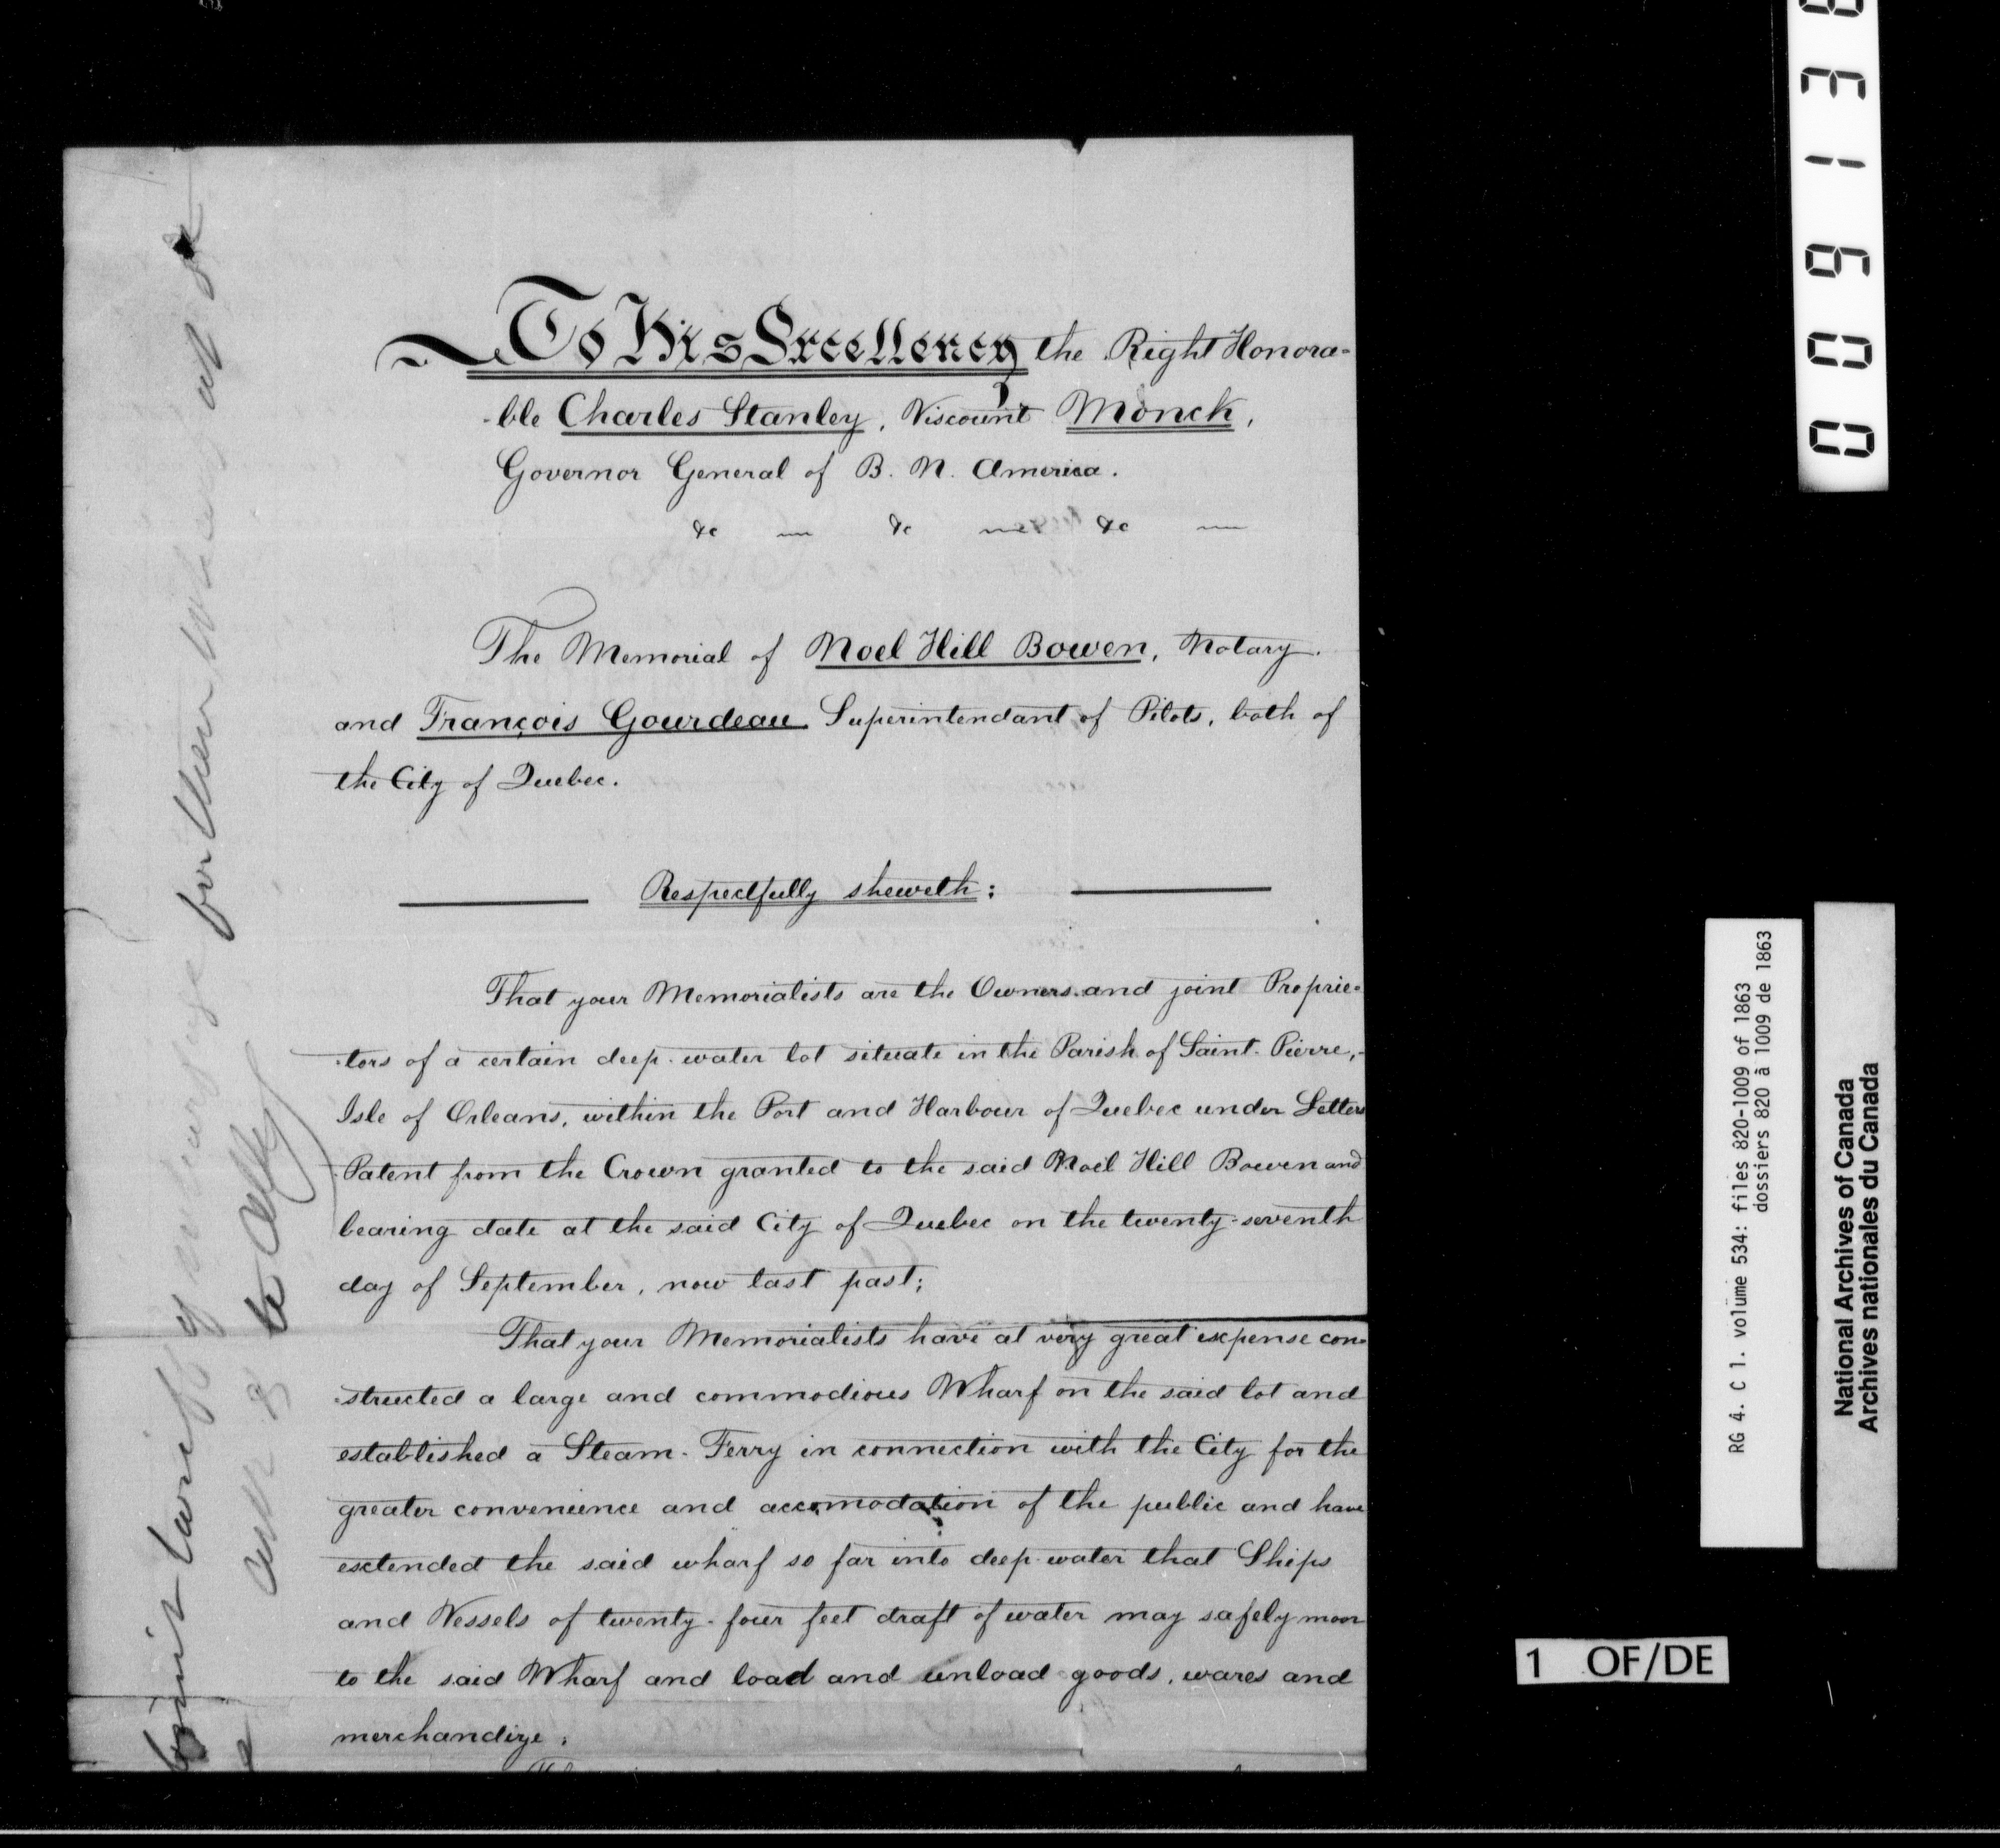 To His Excellency the Right Honora-
-ble Charles Stanley, Viscount Monck,
Governor General of B. N. America.
&c — &c — &c —
The Memorial of Noel Hill Bowen, Notary.
and François Gourdeau Superintendant of Pilots, both of
the City of Quebec.
Respectfully sheweth:
That your Memorialists are the Owners and joint Proprie-
-tors of a certain deep-water lot situate in the Parish of Saint-Pierre,-
Isle of Orleans, within the Port and Harbour of Quebec under Letters
Patent from the Crown granted to the said Noël Hill Bowen and
bearing date at the said City of Quebec on the twenty-seventh
day of September, now last past;
That your Memorialists have at very great expense con-
-structed a large and commodious Wharf on the said lot and
established a Steam-Ferry in connection with the City for the
greater convenience and accomodation of the public and have
extended the said wharf so far into deep-water that Ships
and Vessels of twenty-four feet draft of water may safely moor
to the said Wharf and load and unload goods, wares and
merchandize;
tariff of
for their
and
RG 4. C 1. volume 534: files 820-1009 of 1863
dossiers 820 à 1009 de 1863
National Archives of Canada
Archives nationales du Canada
1 OF/DE